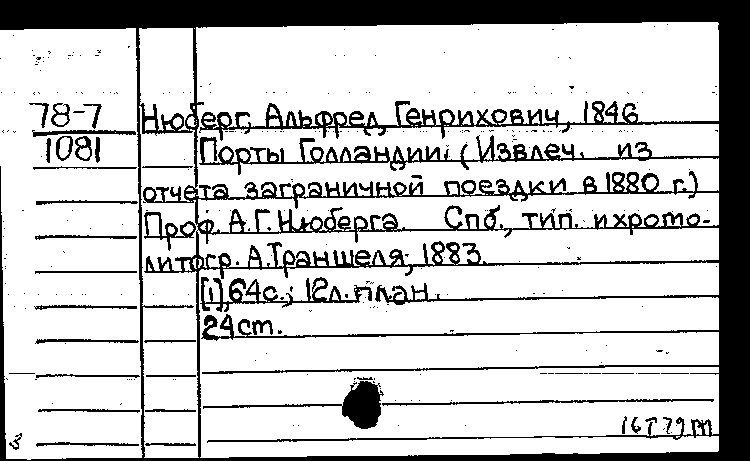 78-7 Нюберг, Альфред Генрихович, 1846
1081 Порты Голландии. (Извлеч. из
отчета заграничной поездки в 1880 г.)
Проф. А.Г. Нюберга. Спб., тип. и хромо-
литогр. А.Траншеля, 1883.
[1], 64с.; 12л. план.
24cm.